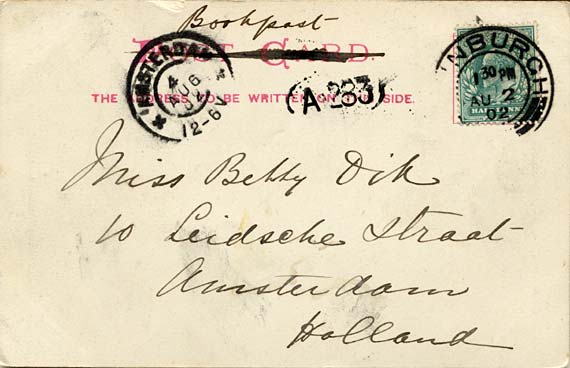 Bookpost
POST CARD.
THE ADDRESS TO BE WRITTEN ON THIS SIDE.
AMSTERDAM
4
AUG
12-6V
(A 283)
EDINBURGH
1 30 PM
AU 2
02
HALFPENNY
Miss Betty Dik
10 Leidsche Straat
Amsterdam
Holland